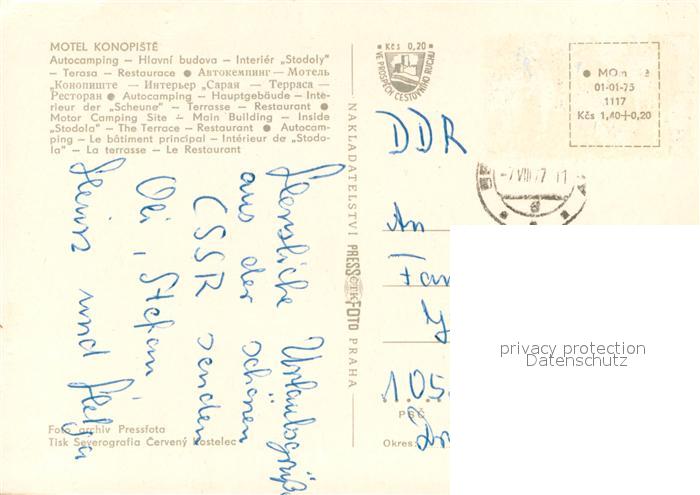 MOTEL KONOPIŠTĚ
Autocamping — Hlavní budova — Interiér „Stodoly"
— Terasa — Restaurace ● Автокемпинг — Мотель
„Конопиште — Интерьер „Сарая — Терраса —
Ресторан ● Autocamping — Hauptgebäude — Inte-
rieur der „Scheune" — Terrasse — Restaurant ●
Motor Camping Site — Main Building — Inside
„Stodola" — The Terrace — Restaurant ● Autocam-
ping — Le bâtiment principal — Intérieur de „Stodo-
la" — La terrasse — Le Restaurant
Herzliche Urlaubsgrüße
aus der schönen
CSSR senden
Oli, Stefan
Heinz und Helga
Foto archiv Pressfoto
Tisk Severografia Červený Kostelec
NAKLADATELSTVÍ PRESSFOTO PRAHA
ČTK
● Kčs 0,20 ●
VE PROSPĚCH CESTOVNÍHO RUCHU
● MOm
01-01-75
1117
Kčs 1,40+0,20
-7.VIII.77 11
DDR
An
Fam
105.
PSČ
Okres:
privacy protection
Datenschutz